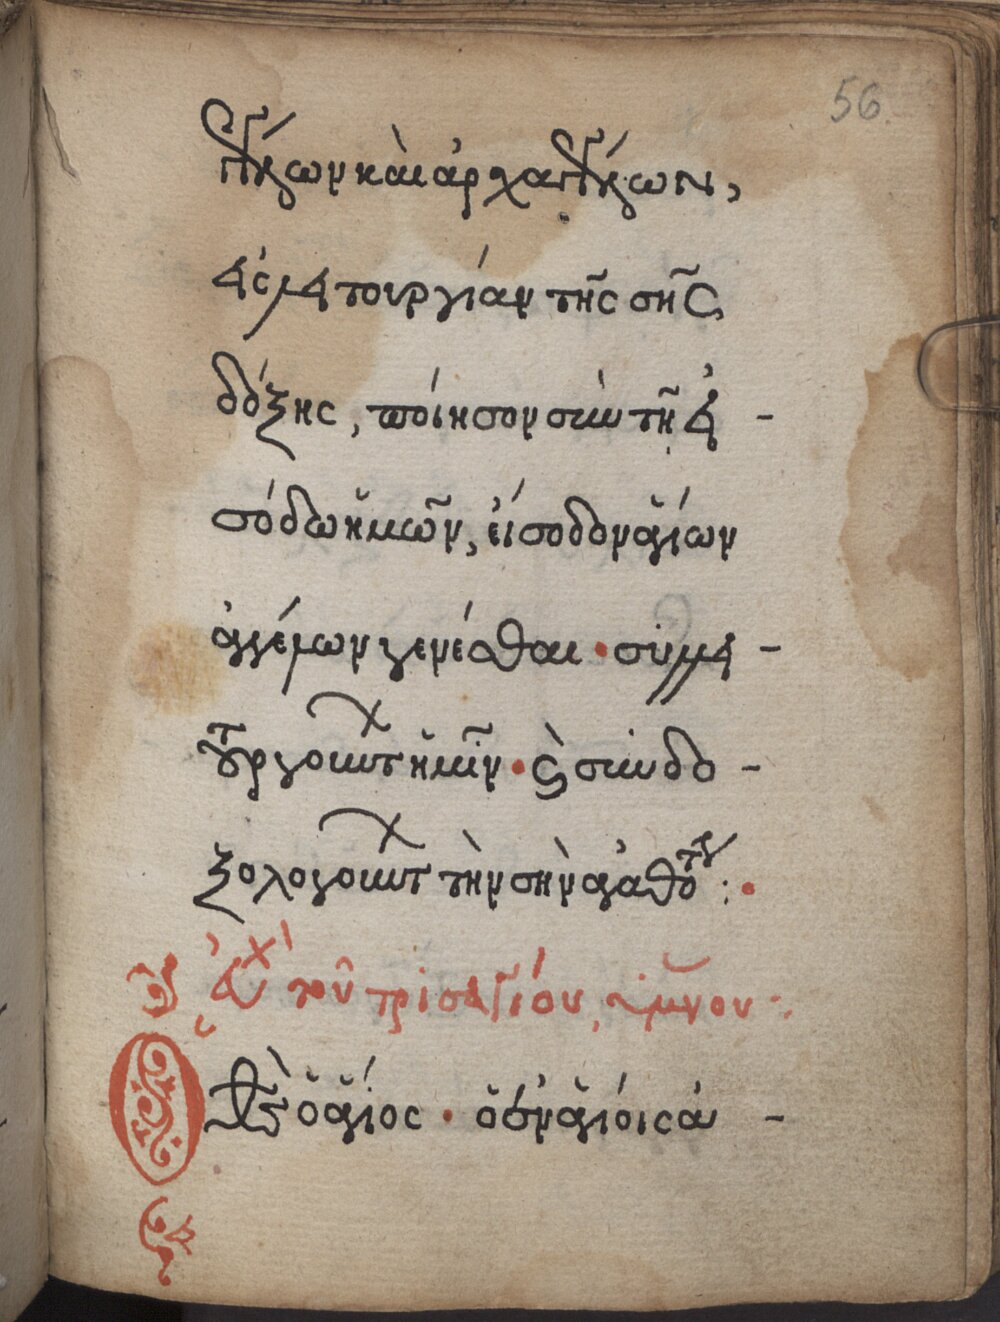 56
ἀγγέλων καὶ ἀρχαγγέλων,
εἰς λειτουργίαν τῆς σῆς
δόξης, ποίησον σὺν τῇ εἰ-
σόδω ἡμῶν, εἴσοδον ἁγίων
ἀγγέλων γενέσθαι · συλλει-
τουργούντων ἡμῖν · καὶ συνδο-
ξολογούντων τὴν σὴν ἀγαθότητα :·
Εὐχὴ τοῦ τρισαγίου ὕμνου ·:
Ὁ Θεὸς ὁ ἅγιος · ὁ ἐν ἁγίοις ἀ-